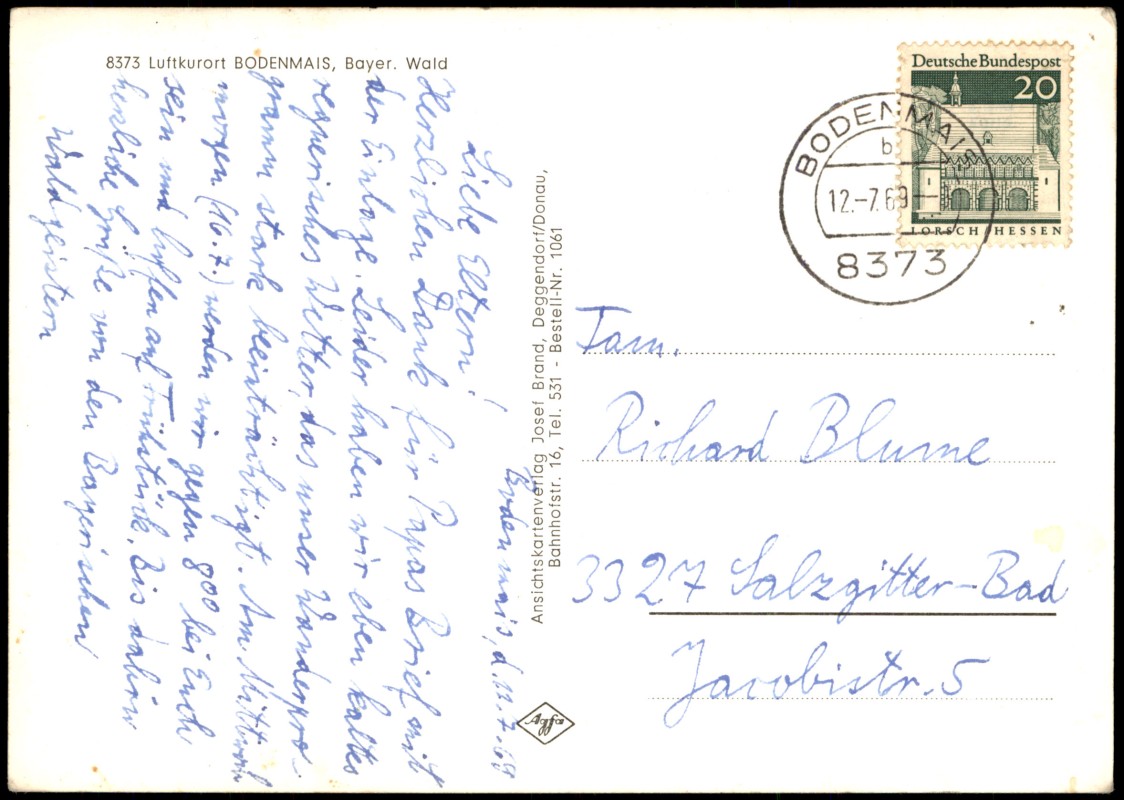 8373 Luftkurort BODENMAIS, Bayer. Wald
Bodenmais, d. 11.7.69
Liebe Eltern!
Herzlichen Dank für Papas Brief mit
der Einlage. Leider haben wir eben kaltes
regnerisches Wetter, das unser Wanderpro-
gramm stark beeinträchtigt. Am Mittwoch
morgen (16.7.) werden wir gegen 800 bei Euch
sein und hoffen auf Frühstück. Bis dahin
herzliche Grüße von den Bayerischen
Waldgeistern
Ansichtskartenverlag Josef Brand, Deggendorf/Donau,
Bahnhofstr. 16, Tel. 531 - Bestell-Nr. 1061
Agfa
Deutsche Bundespost
20
LORSCH HESSEN
BODENMAIS
b
12.-7.69
8373
Fam.
Richard Blume
3327 Salzgitter-Bad
Jacobistr. 5